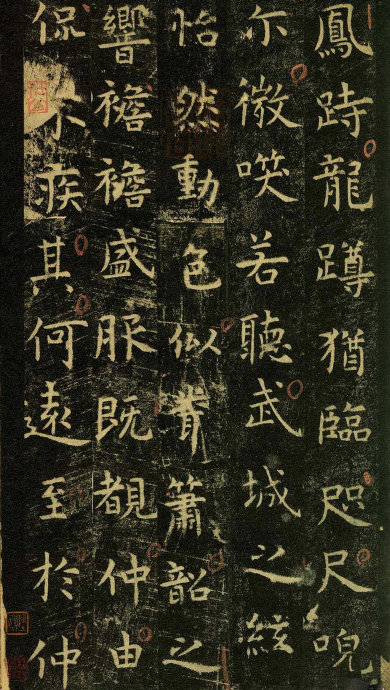 鳳跱龍蹲猶臨咫尺唲
尓微咲若聽武城之絃
怡然動色似聞簫韶之
響襜襜盛服既覩仲由
侃不疾其何遠至於仲